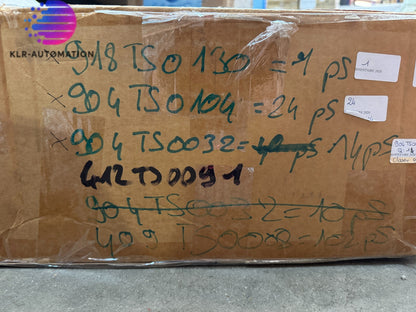 KLR-AUTOMATION
918TS0130 = 1 ps
x 904TS0104 = 24 ps
x 904TS0032 = 14 ps
412TS0091
904TS0032 = 10 ps
409TS0002 = 10 ps
1
24